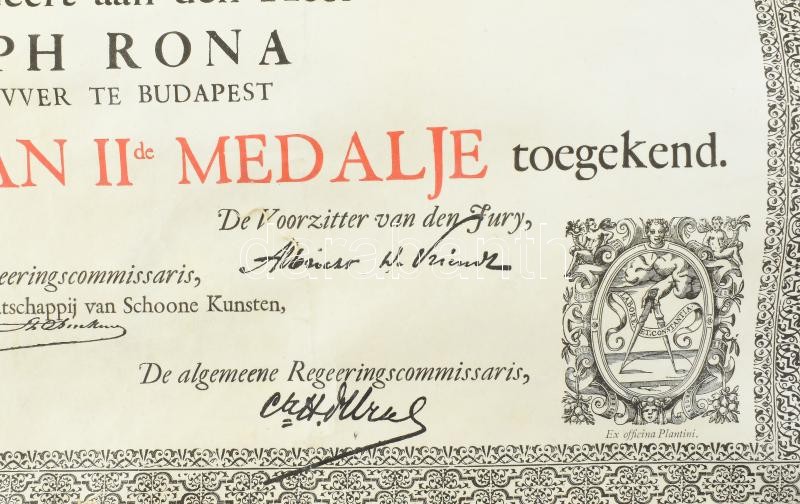 aan den
PH RONA
VVER TE BUDAPEST
AN IIde MEDALJE toegekend.
De Voorzitter van den Jury,
Albrecht De Vriendt
eeringscommissaris,
tschappij van Schoone Kunsten,
De algemeene Regeeringscommissaris,
LABORE ET CONSTANTIA
Ex officina Plantini.
darabanth